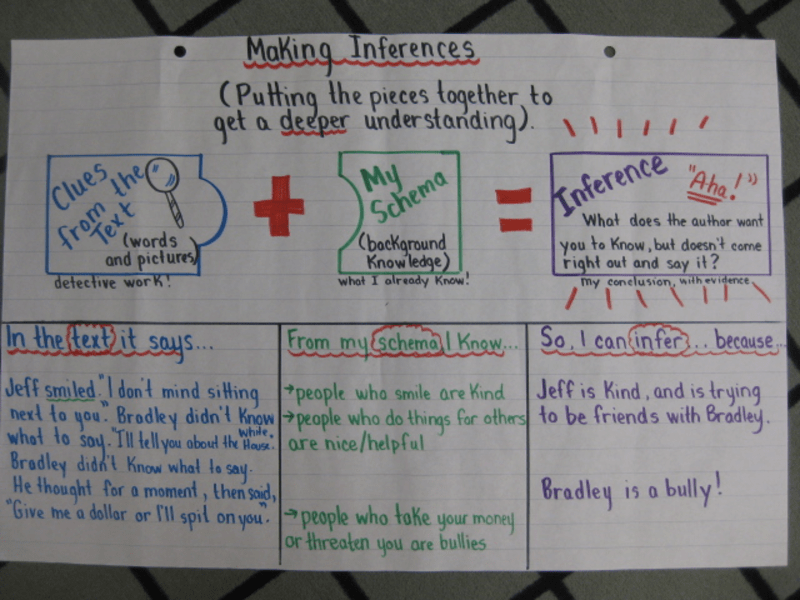 Making Inferences
(Putting the pieces together to
get a deeper understanding).
Clues
from the
Text
(words
and pictures)
detective work!
+
My
Schema
(background
Knowledge)
what I already know!
=
Inference
"Aha!"
What does the author want
you to Know, but doesn't come
right out and say it?
my conclusion, with evidence
In the text it says...
Jeff smiled. "I don't mind sitting
next to you." Bradley didn't Know
what to say. "I'll tell you about the White House.
Bradley didn't Know what to say.
He thought for a moment, then said,
"Give me a dollar or I'll spit on you."
From my schema, I Know...
→people who smile are Kind
→people who do things for others
are nice/helpful
→people who take your money
or threaten you are bullies
So, I can infer... because...
Jeff is Kind, and is trying
to be friends with Bradley.
Bradley is a bully!